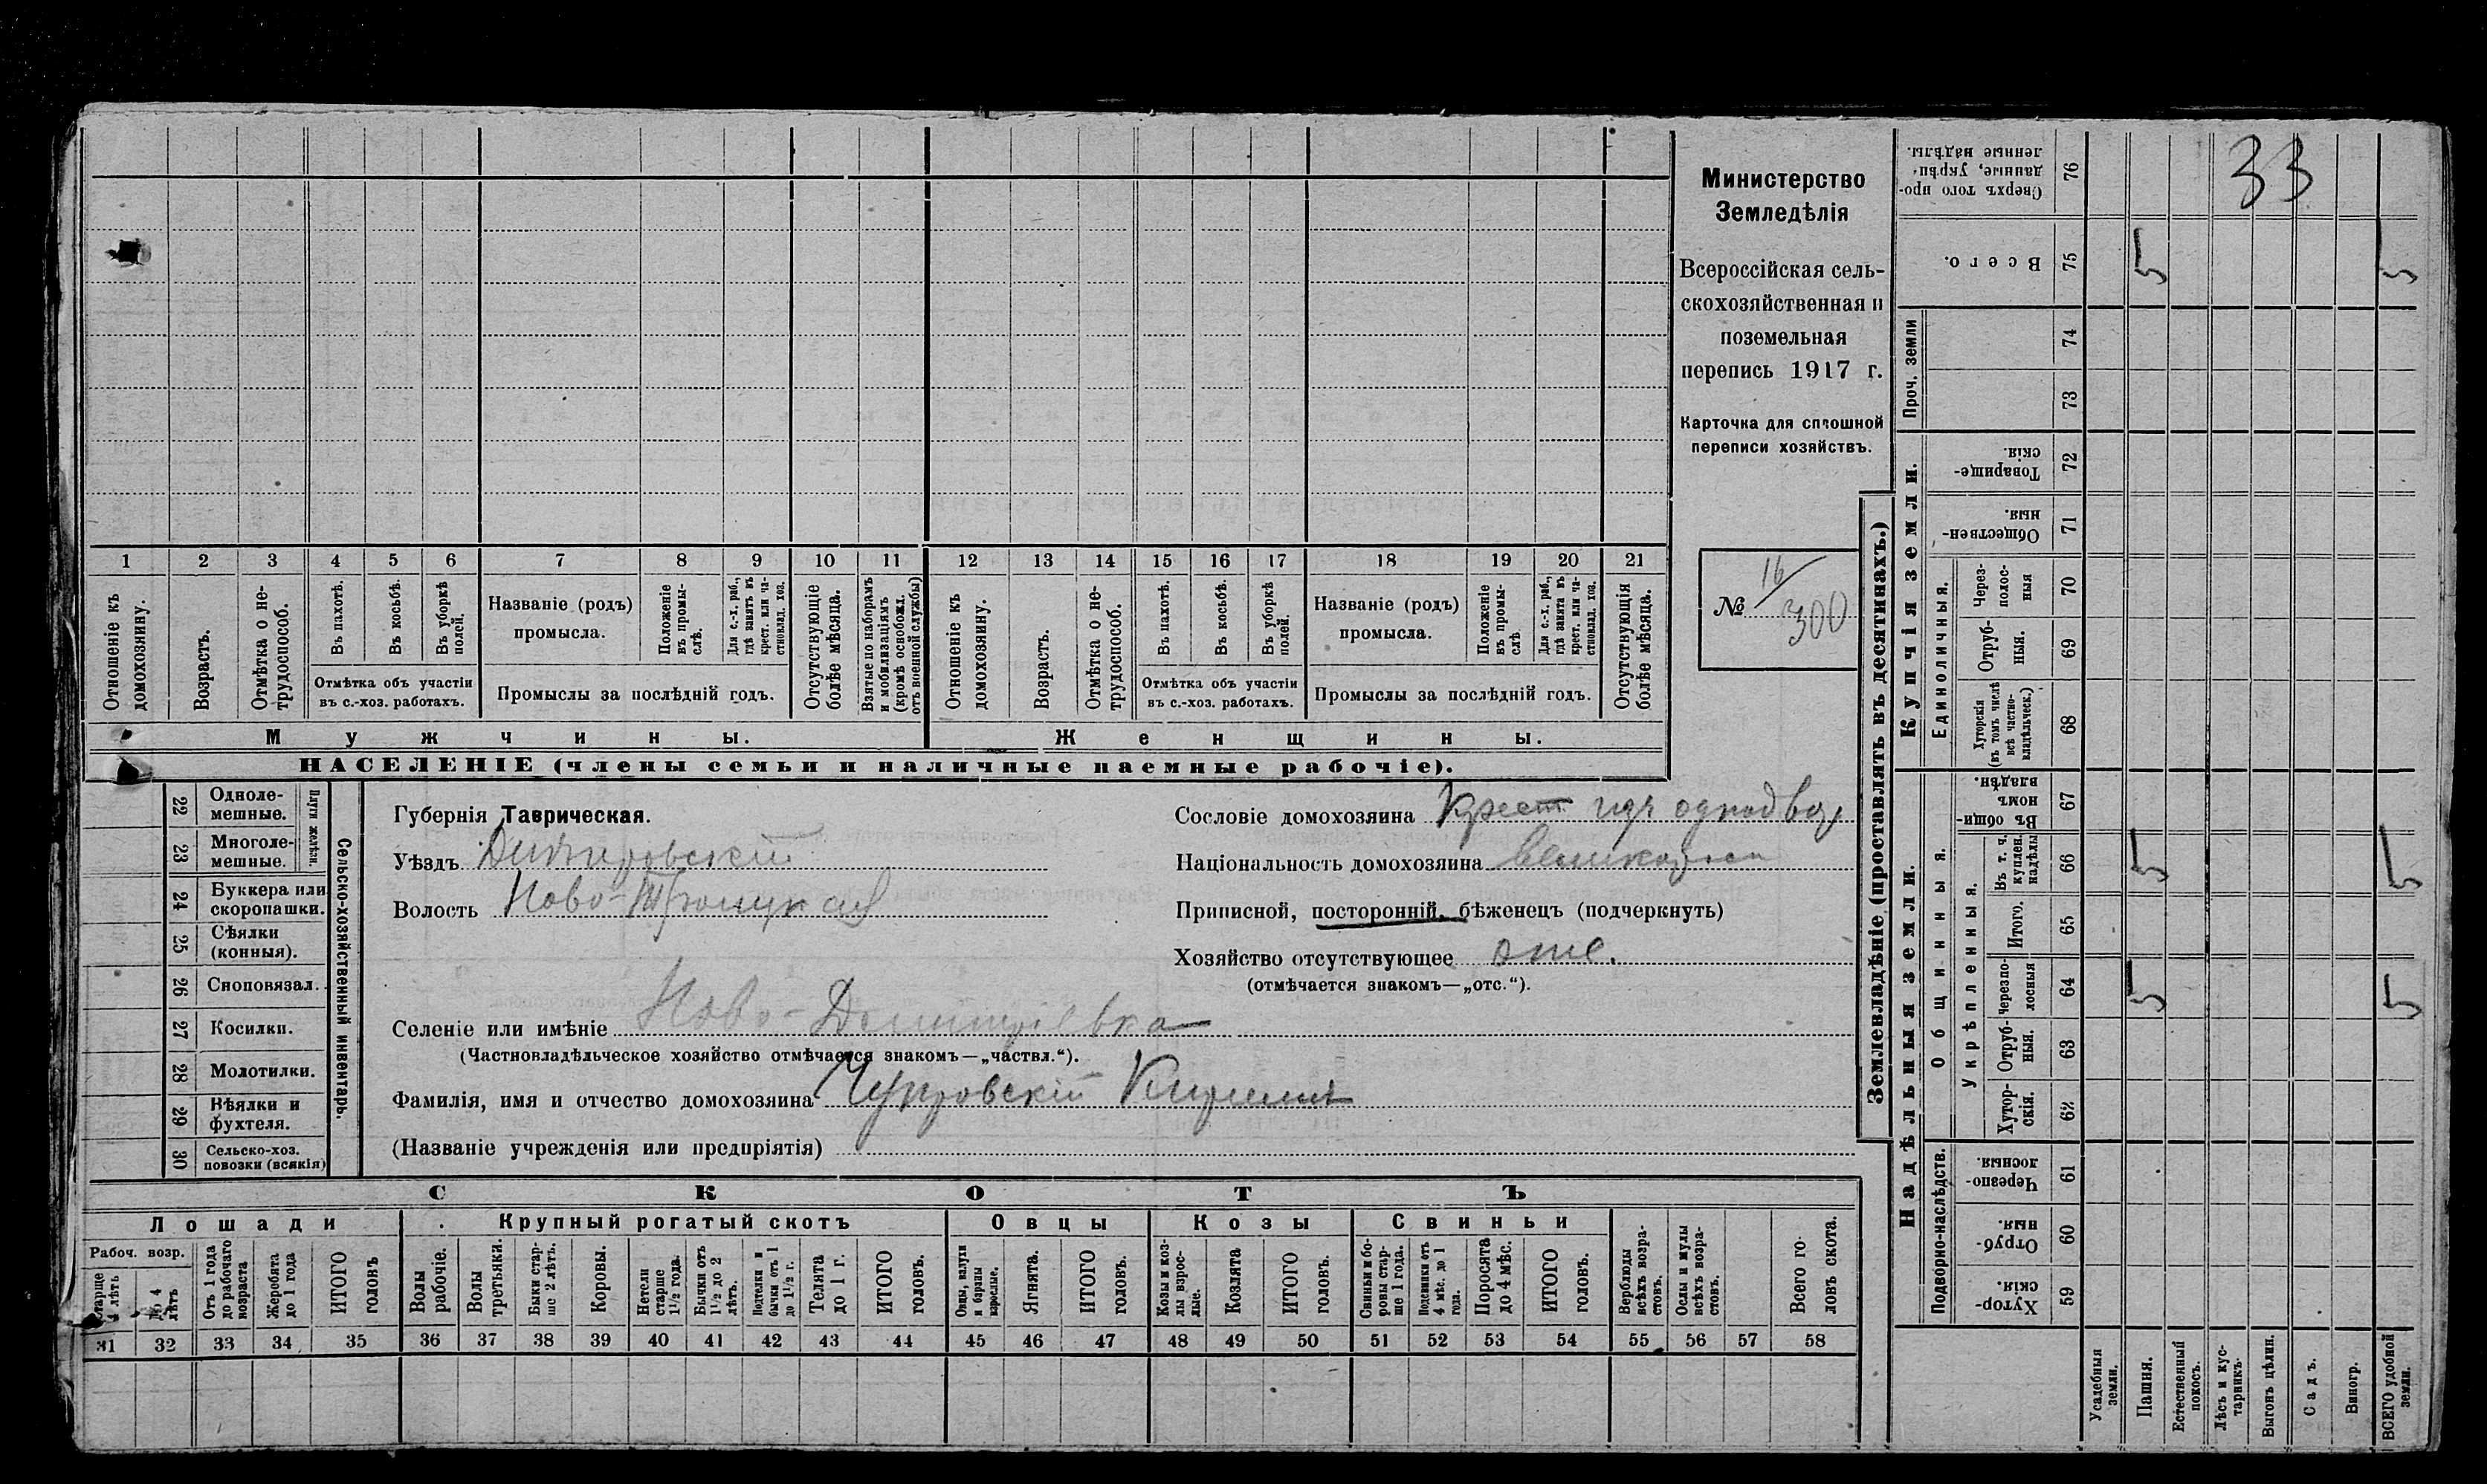 Министерство
Земледѣлія
Всероссійская сель-
скохозяйственная и
поземельная
перепись 1917 г.
Карточка для сплошной
переписи хозяйствъ.
№ 16/300
1 2 3 4 5 6 7 8 9 10 11 12 13 14 15 16 17 18 19 20 21
Отношеніе къ домохозяину.
Возрастъ.
Отмѣтка о не-трудоспособ.
Въ пахотѣ.
Въ косьбѣ.
Въ уборкѣ полей.
Отмѣтка объ участіи
въ с.-хоз. работахъ.
Названіе (родъ)
промысла.
Положеніе въ промы-слѣ.
Для с.-х. раб., гдѣ занятъ въ крест. или ча-стновлад. хоз.
Промыслы за послѣдній годъ.
Отсутствующіе болѣе мѣсяца.
Взятые по наборамъ и мобилизаціямъ (кромѣ освобожд. отъ военной службы)
Отношеніе къ домохозяину.
Возрастъ.
Отмѣтка о не-трудоспособ.
Въ пахотѣ.
Въ косьбѣ.
Въ уборкѣ полей.
Отмѣтка объ участіи
въ с.-хоз. работахъ.
Названіе (родъ)
промысла.
Положеніе въ промы-слѣ
Для с.-х. раб., гдѣ занята въ крест. или ча-стновлад. хоз.
Промыслы за послѣдній годъ.
Отсутствующія болѣе мѣсяца.
Мужчины. Женщины.
НАСЕЛЕНІЕ (члены семьи и наличные наемные рабочіе).
22 Одноле-мешные.
23 Многоле-мешные.
Плуги желѣзн.
24 Буккера или скоропашки.
25 Сѣялки (конныя).
26 Сноповязал.
27 Косилки.
28 Молотилки.
29 Вѣялки и фухтеля.
30 Сельско-хоз. повозки (всякія)
Сельско-хозяйственный инвентарь.
Губернія Таврическая.
Уѣздъ Днѣпровскій
Волость Ново-Троицкая
Сословіе домохозяина Крест. изъ однодвор
Національность домохозяина великоросс
Приписной, посторонній, бѣженецъ (подчеркнуть)
Хозяйство отсутствующее отс.
(отмѣчается знакомъ—„отс.“).
Селеніе или имѣніе Ново-Дмитріевка
(Частновладѣльческое хозяйство отмѣчается знакомъ—„частвл.“).
Фамилія, имя и отчество домохозяина Чупровскій Кирилл
(Названіе учрежденія или предпріятія)
СКОТЪ
Лошади Крупный рогатый скотъ Овцы Козы Свиньи
Рабоч. возр.
Старше 4 лѣтъ
До 4 лѣтъ
Отъ 1 года до рабочаго возраста
Жеребята до 1 года
ИТОГО головъ
Волы рабочіе.
Волы третьяки.
Быки стар-ше 2 лѣтъ.
Коровы.
Нетели старше 1½ года.
Бычки отъ 1½ до 2 лѣтъ.
Подтелки и бычки отъ 1 до 1½ г.
Телята до 1 г.
ИТОГО головъ.
Овцы, валухи и бараны взрослые.
Ягнята.
ИТОГО головъ.
Козы и коз-лы взрос-лые.
Козлята
ИТОГО головъ.
Свиньи и бо-ровы стар-ше 1 года.
Подсвинки отъ 4 мѣс. до 1 года.
Поросята до 4 мѣс.
ИТОГО головъ.
Верблюды всѣхъ возра-стовъ.
Ослы и мулы всѣхъ возра-стовъ.
Всего го-ловъ скота.
31 32 33 34 35 36 37 38 39 40 41 42 43 44 45 46 47 48 49 50 51 52 53 54 55 56 57 58
Землевладѣніе (проставлять въ десятинахъ.)
33
Сверхъ того про-данные, укрѣп-ленные надѣлы. 76
Всего. 75 5 5
Проч. земли
74
73
Купчія земли.
Товарище-скія. 72
Обществен-ныя. 71
Единоличныя.
Через-полос-ныя 70
Отруб-ныя. 69
Хуторскія (въ томъ числѣ всѣ частно-владѣльческ.) 68
Надѣльныя земли.
Общинныя.
Въ общин-номъ владѣн. 67
Укрѣпленныя.
Въ т. ч. куплен. надѣлы 66 5 5
Итого. 65
Черезпо-лосныя 64 5 5
Отруб-ныя. 63
Хутор-скія. 62
Подворно-наслѣдств.
Черезпо-лосныя. 61
Отруб-ныя. 60
Хутор-скія. 59
Усадебныя земли.
Пашня.
Естественный покосъ.
Лѣсъ и кус-тарникъ.
Выгонъ цѣлин.
Садъ.
Виногр.
ВСЕГО удобной земли.